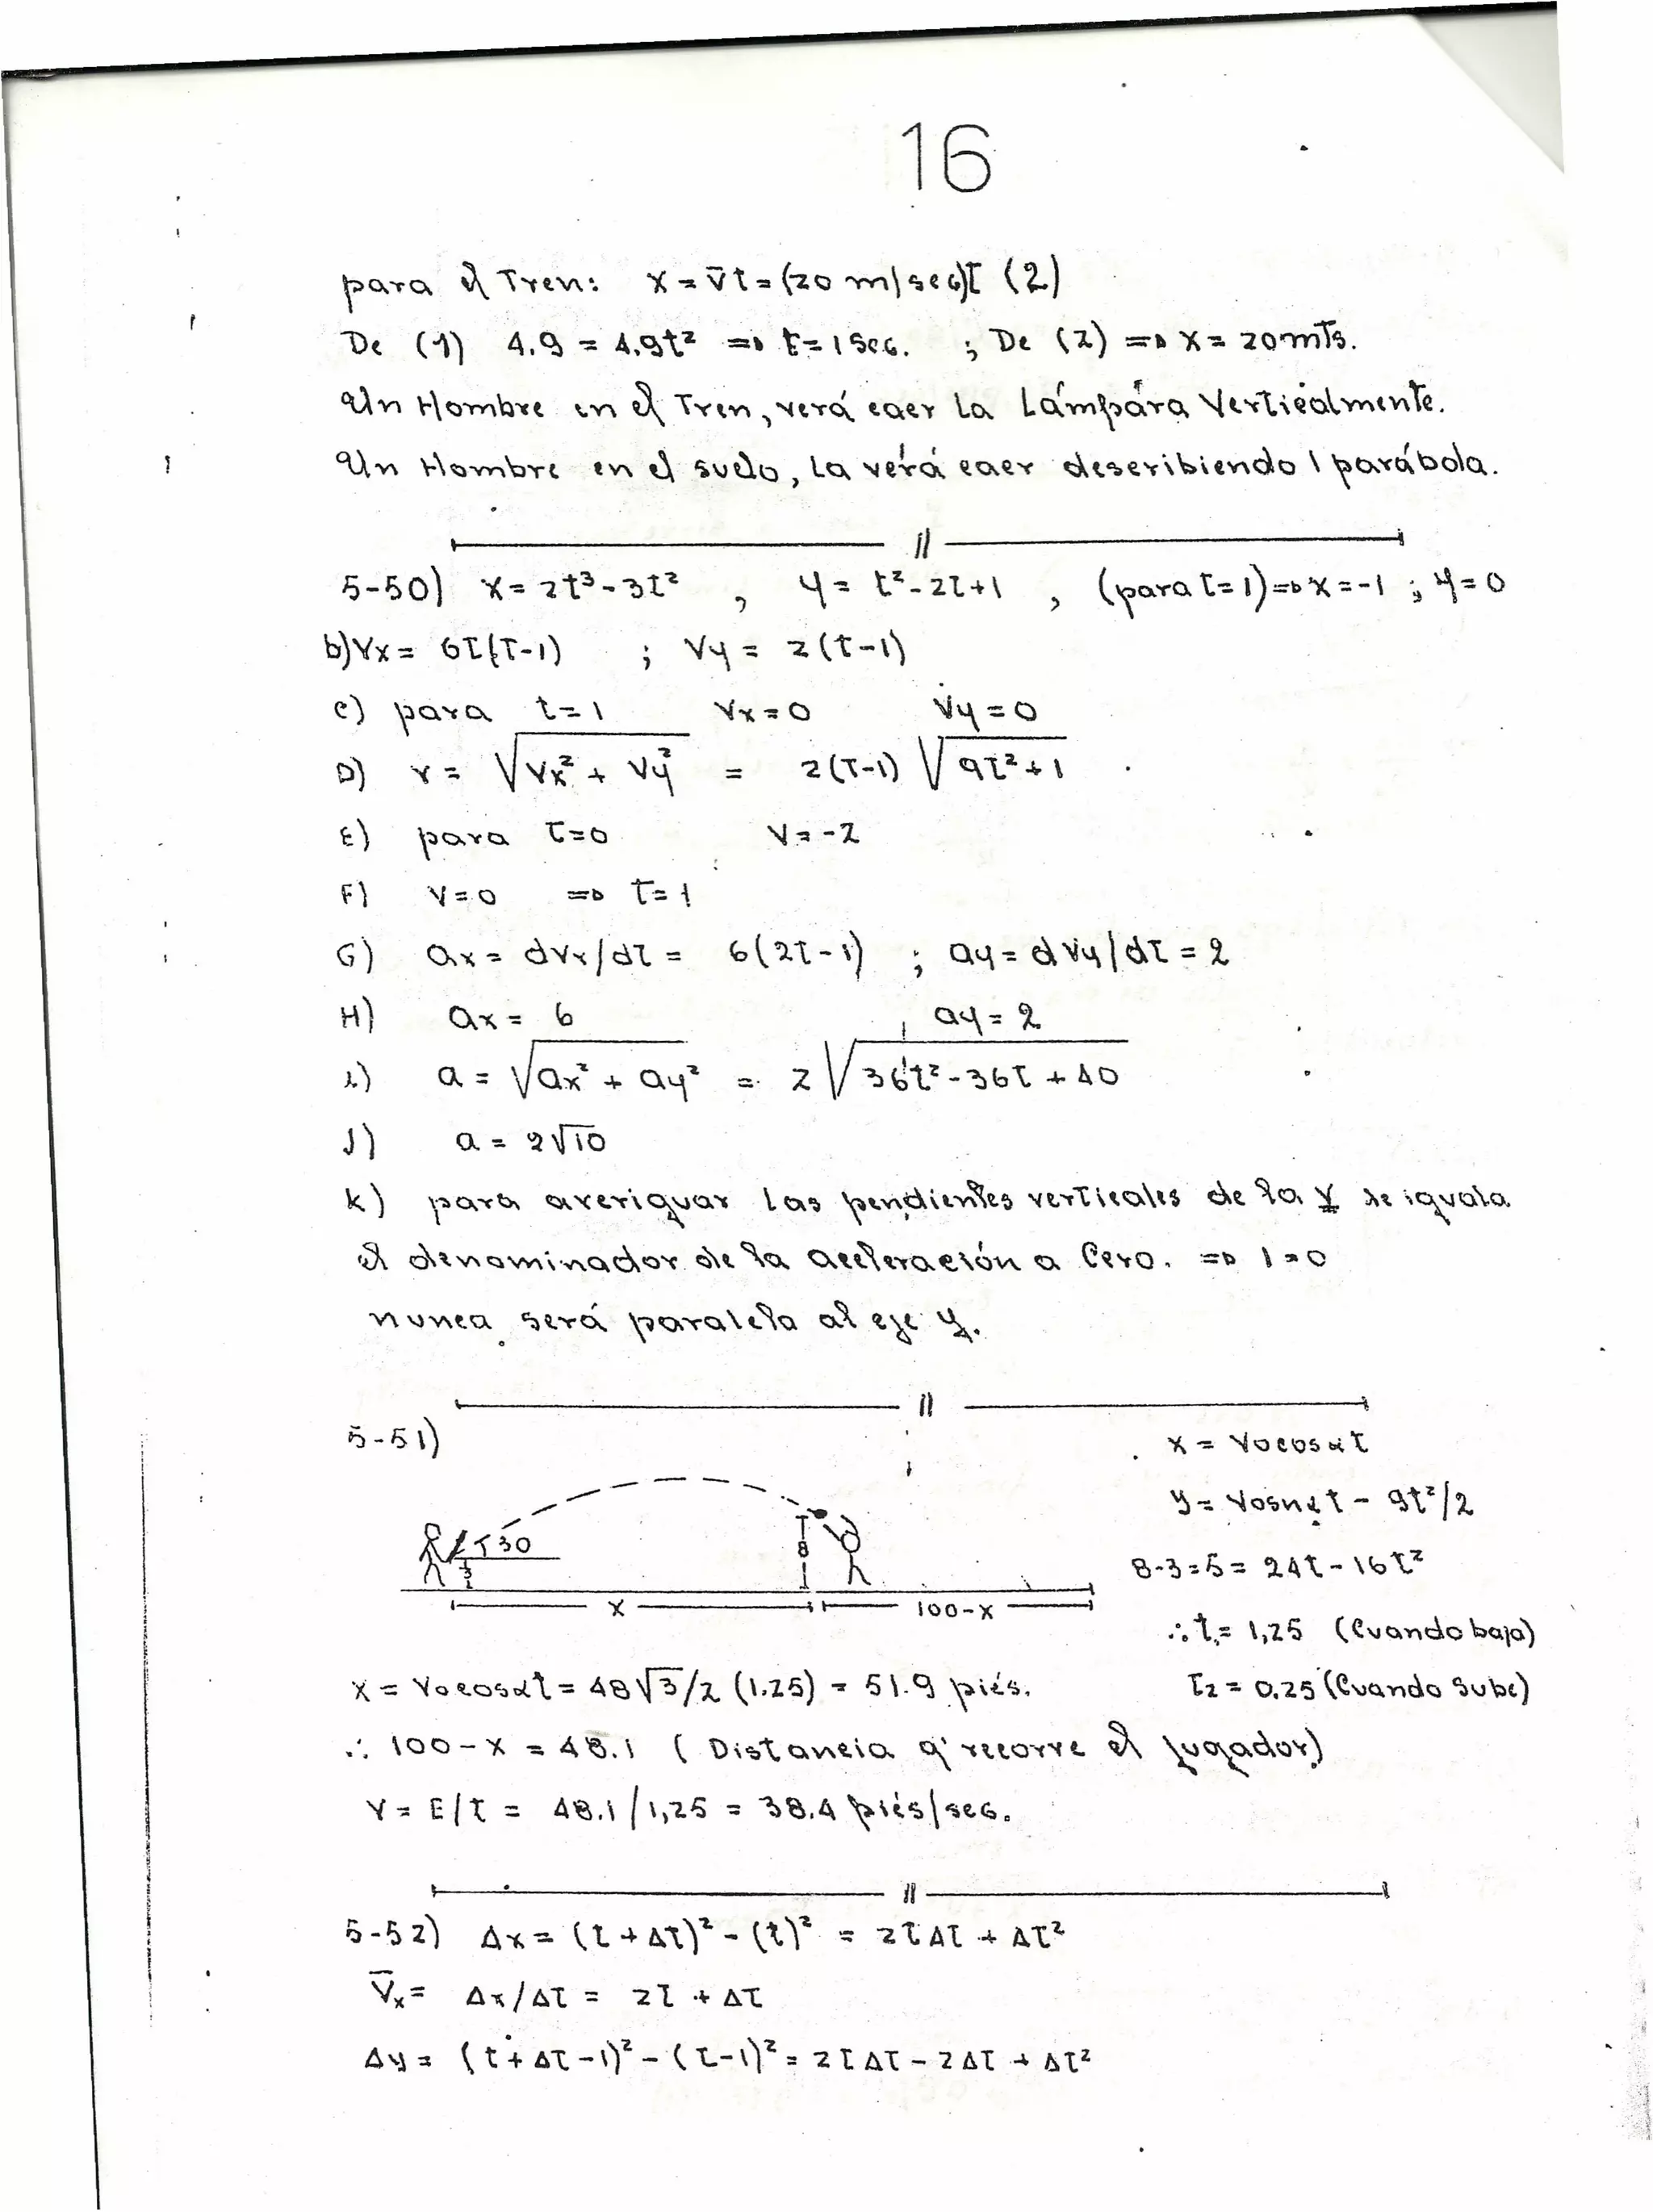 16
para el Tren: x = v̄t = (20 m/seg)t (2)
De (1) 4.9 = 4.9t² => t = 1 seg. ; De (2) => x = 20 mts.
Un Hombre en el Tren, verá caer la Lámpára Verticalmente.
Un Hombre en el suelo, la verá caer describiendo 1 parábola.
//
5-50) x = 2t³ - 3t² , y = t² - 2t + 1 , (para t = 1) => x = -1 ; y = 0
b) Vx = 6t(t-1) ; Vy = 2(t-1)
c) para t = 1 Vx = 0 Vy = 0
D) v = √(Vx² + Vy²) = 2(t-1) √(9t² + 1)
E) para t = 0 V = -2
F) V = 0 => t = 1
G) ax = dVx/dt = 6(2t - 1) ; ay = dVy/dt = 2
H) ax = 6 , ay = 2
i) a = √(ax² + ay²) = 2√(36t² - 36t + 40)
J) a = 2√10
K) para averiguar las pendientes verticales de la v se iguala
el denominador de la aceleración a Cero. => 1 = 0
nunca será paralela al eje y.
//
5-51)
x = Vocosαt
y = Vosnαt - gt²/2
30
3
8
8-3 = 5 = 24t - 16t²
x
100-x
∴ t₁ = 1,25 (Cuando baja)
x = Vocosαt = 48√3/2 (1.25) = 51.9 piés.
t₂ = 0.25 (Cuando Sube)
∴ 100 - x = 48.1 ( Distancia q' recorre el jugador)
V = E/t = 48.1/1,25 = 38.4 piés/seg.
//
5-52) Δx = (t + Δt)² - (t)² = 2tΔt + Δt²
V̄x = Δx/Δt = 2t + Δt
Δy = (t + Δt - 1)² - (t-1)² = 2tΔt - 2Δt + Δt²